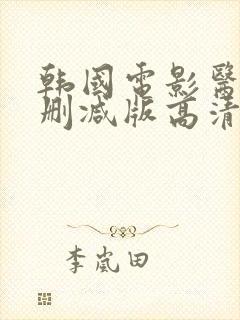 韩國電影醫
删减版高清
李嵐田